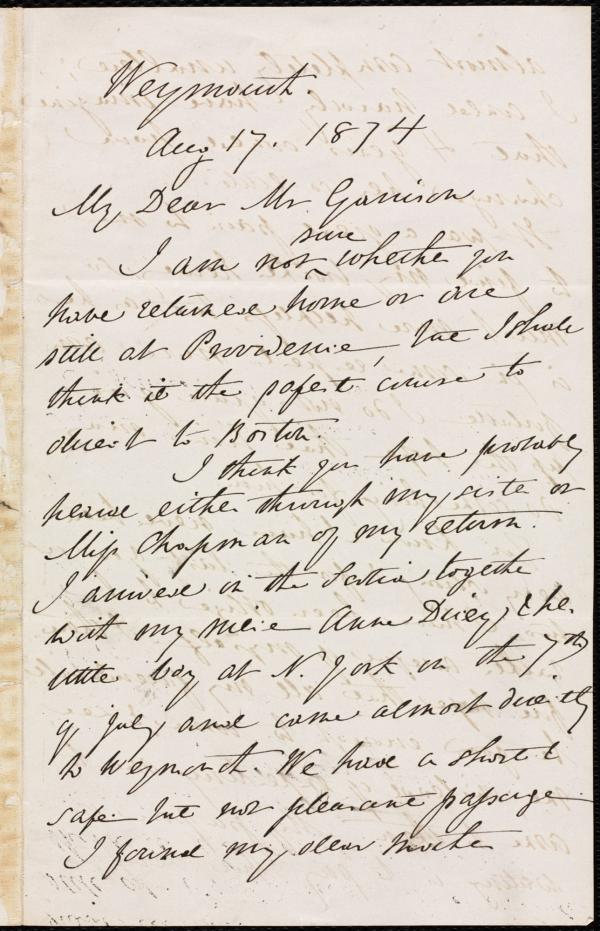 Weymouth.
Aug 17. 1874
My Dear Mr Garrison
I am not sure whether you
have returned home or are
still at Providence, but I shall
think it the safest course to
direct to Boston.
I think you have probably
heard either through my sister or
Miss Chapman of my return.
I arrived in the Scotia together
with my niece Anne Dicey, & her
little boy at N. York on the 7th
of July and came almost directly
to Weymouth. We had a short &
safe but not pleasant passage
I found my dear mother